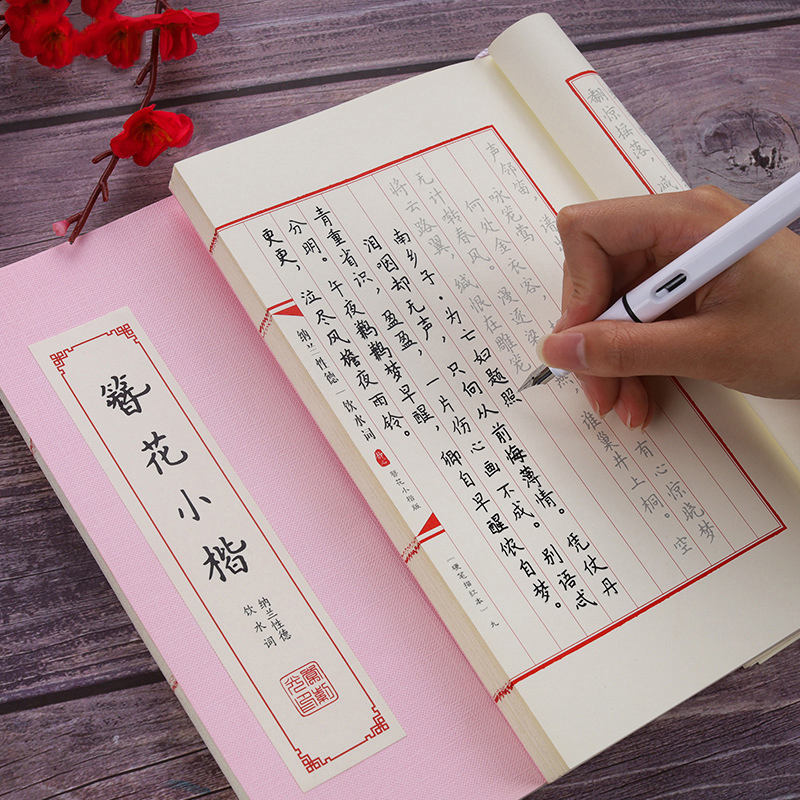 翻惊摇落，减
声邻笛，谱
咏笼莺
何处金衣客，
有心惊晓梦
无计转春风。漫逐梁
谁巢井上桐。空
将云路翼，缄恨在雕笼
南乡子·为亡妇题照
泪咽却无声，只向从前悔薄情。凭仗丹
青重省识，盈盈，一片伤心画不成。别语忒
分明。午夜鹣鹣梦早醒，卿自早醒侬自梦。
更更，泣尽风檐夜雨铃。
纳兰性德｜饮水词
簪花小楷版
「硬笔描红本」
九
簪花小楷
纳兰性德
饮水词